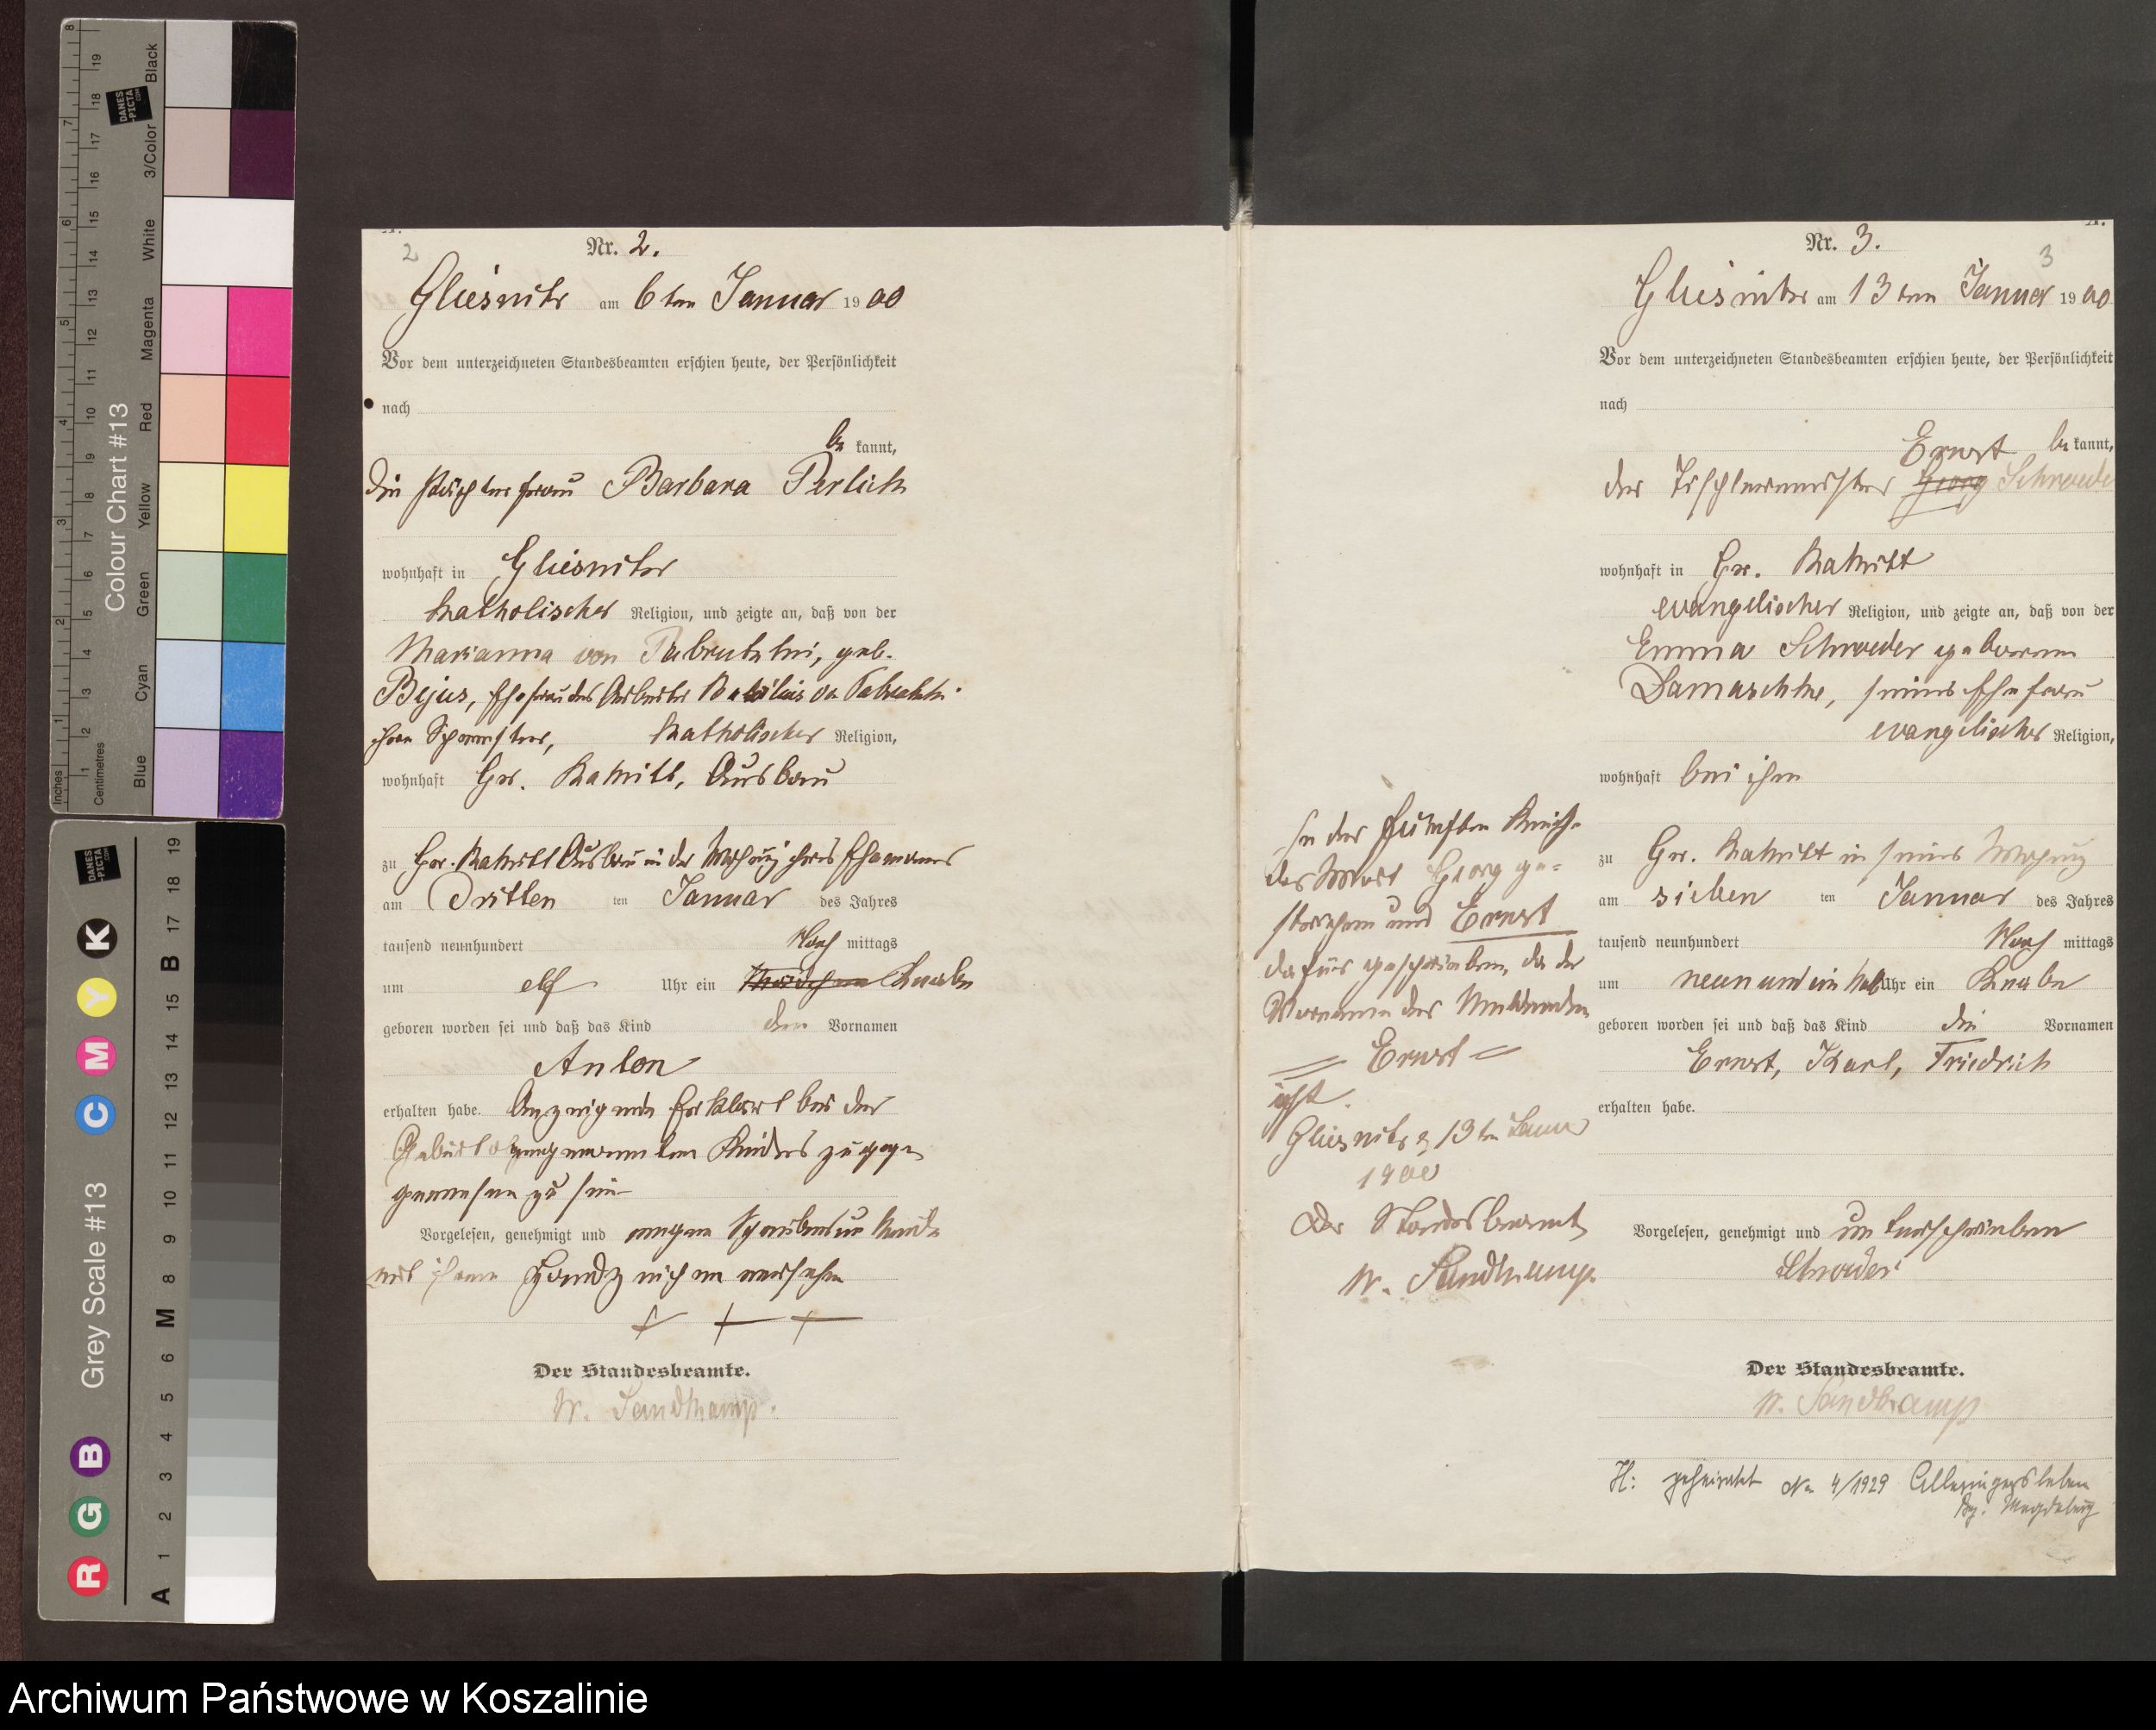 A.
2
Nr. 2.
Gliesnitz am 6ten Januar 1900
Vor dem unterzeichneten Standesbeamten erschien heute, der Persönlichkeit
nach
be kannt,
die Barbara Perlich
wohnhaft in Gliesnitz
katholischer Religion, und zeigte an, daß von der
Marianna von geb.
Bejus, Ehefrau des Arbeiter von
ihrer katholischer Religion,
wohnhaft Gr. Rakitt, Ausbau
zu Gr. Rakitt Ausbau in der Wohnung ihres Ehemannes
am Dritten ten Januar des Jahres
tausend neunhundert Nach mittags
um elf Uhr ein Mädchen Knabe
geboren worden sei und daß das Kind den Vornamen
Anton
erhalten habe. Anzeigende erklärt bei der
Geburt Kindes zugegen
gewesen zu sein
Vorgelesen, genehmigt und wegen
mit ihrem Handzeichen versehen
+ + +
Der Standesbeamte.
W. Sandkamp.
A.
3
Nr. 3.
Gliesnitz am 13ten Januar 1900
Vor dem unterzeichneten Standesbeamten erschien heute, der Persönlichkeit
nach
Ernst be kannt,
der Tischlermeister Georg Schroeder
wohnhaft in Gr. Rakitt
evangelischer Religion, und zeigte an, daß von der
Emma Schroeder geborenen
Damaschke, seiner Ehefrau
evangelischer Religion,
wohnhaft bei ihm
zu Gr. Rakitt in seiner Wohnung
am sieben ten Januar des Jahres
tausend neunhundert Nach mittags
um neun und ein halb Uhr ein Knabe
geboren worden sei und daß das Kind die Vornamen
Ernst, Karl, Friedrich
erhalten habe.
Vorgelesen, genehmigt und unterschrieben
Schroeder
Der Standesbeamte.
W. Sandkamp
H: geheiratet No 4/1929 Alleringersleben
Bz. Magdeburg
In der fünften Reihe
das Wort Georg ge=
strichen und Ernst
dafür geschrieben, da der
Vorname des Meldenden
= Ernst =
ist.
Gliesnitz, 13ten Januar
1900
Der Standesbeamte
W. Sandkamp
Colour Chart #13
Blue Cyan Green Yellow Red Magenta White 3/Color Black
Inches 1 2 3 4 5 6 7 8
Centimetres 1 2 3 4 5 6 7 8 9 10 11 12 13 14 15 16 17 18 19
DANES
-PICTA
.COM
Grey Scale #13
R G B C M Y K
A 1 2 3 4 5 6 M 8 9 10 11 12 13 14 15 B 17 18 19
DANES
-PICTA
.COM
Archiwum Państwowe w Koszalinie